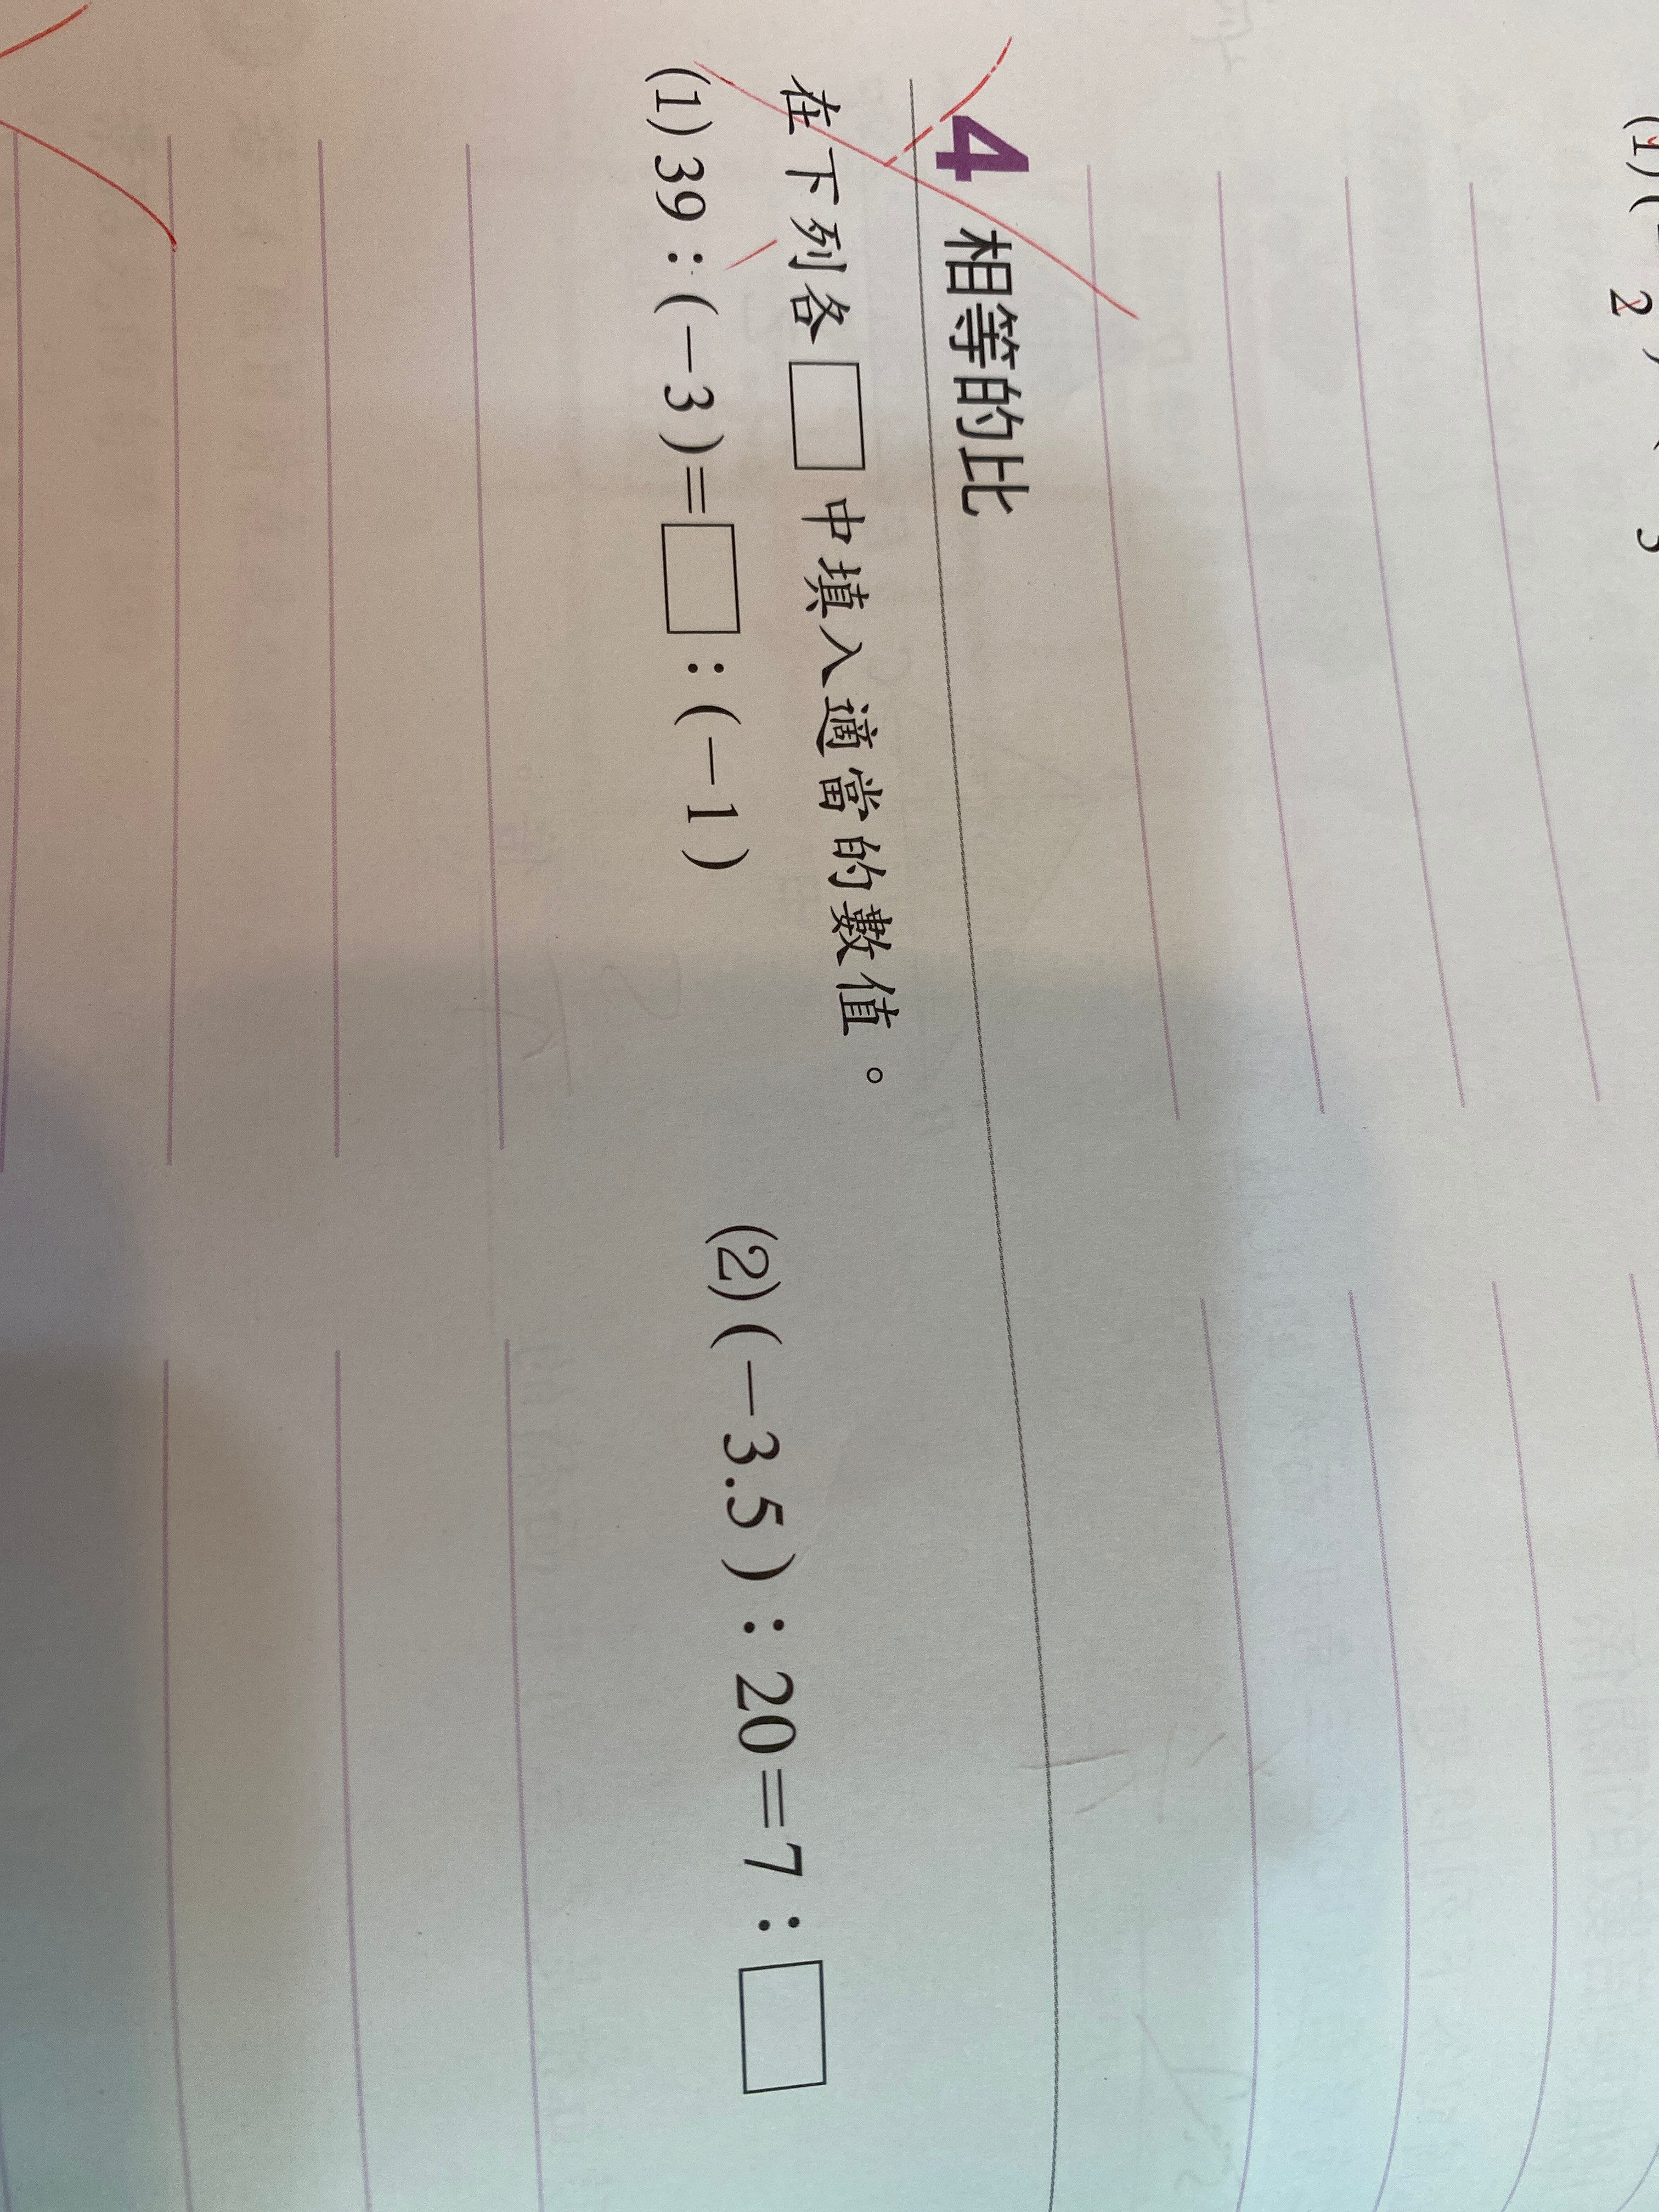 4 相等的比
在下列各□中填入適當的數值。
(1) 39：(－3)＝□：(－1)
(2) (－3.5)：20＝7：□